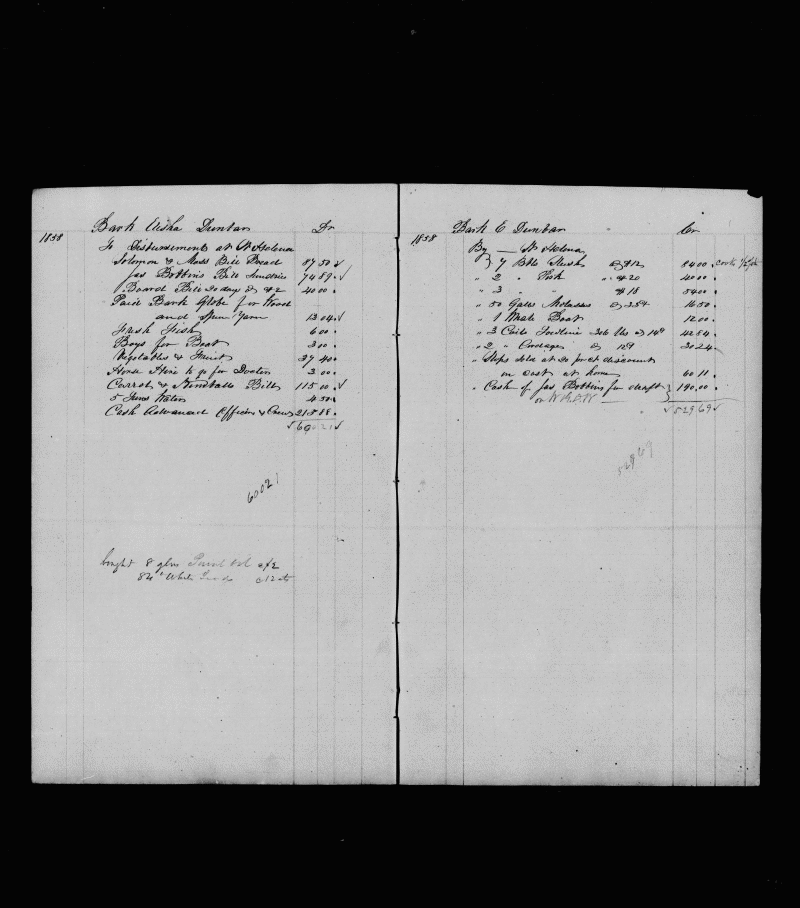 Bark Elisha Dunbar Dr
1858
To Disbursements at St Helena
Solomon & Moss Bill Bread 87 50
Jas Bobbins Bill Sundries 74 89
Board Bill 20 days @ $2 40 00
Paid Bark Globe for Wood
and Spun Yarn 13 04
Fresh Fish 6 00
Boys for Boat 3 00
Vegetables & Fruit 37 40
Horse Hire to go for Doctor 3 00
Carrol & Kimballs Bill 115 00
5 Tuns Water 4 50
Cash Advanced Officers & Crew 215 88
60021
60021
bought 8 glns Paint Oil @ $2
84 " White Lead @ 12 cts
Bark E Dunbar Cr
1858
By St Helena
" 7 Bbls Slush @ $12 84 00 cooks 1/2
" 2 " Pork " $20 40 00
" 3 " " $18 54 00
" 50 Gals Molasses @ 33 ct 16 50
" 1 Whale Boat 12 00
" 3 Coils Towline 306 lbs @ 14 ct 42 84
" 2 " Cordage @ 12 ct 30 24
" Slops sold at 20 pr ct discount
on cost at home 60 11
" Cash of Jas Bobbins for draft 190 00
on
529 69
529 69